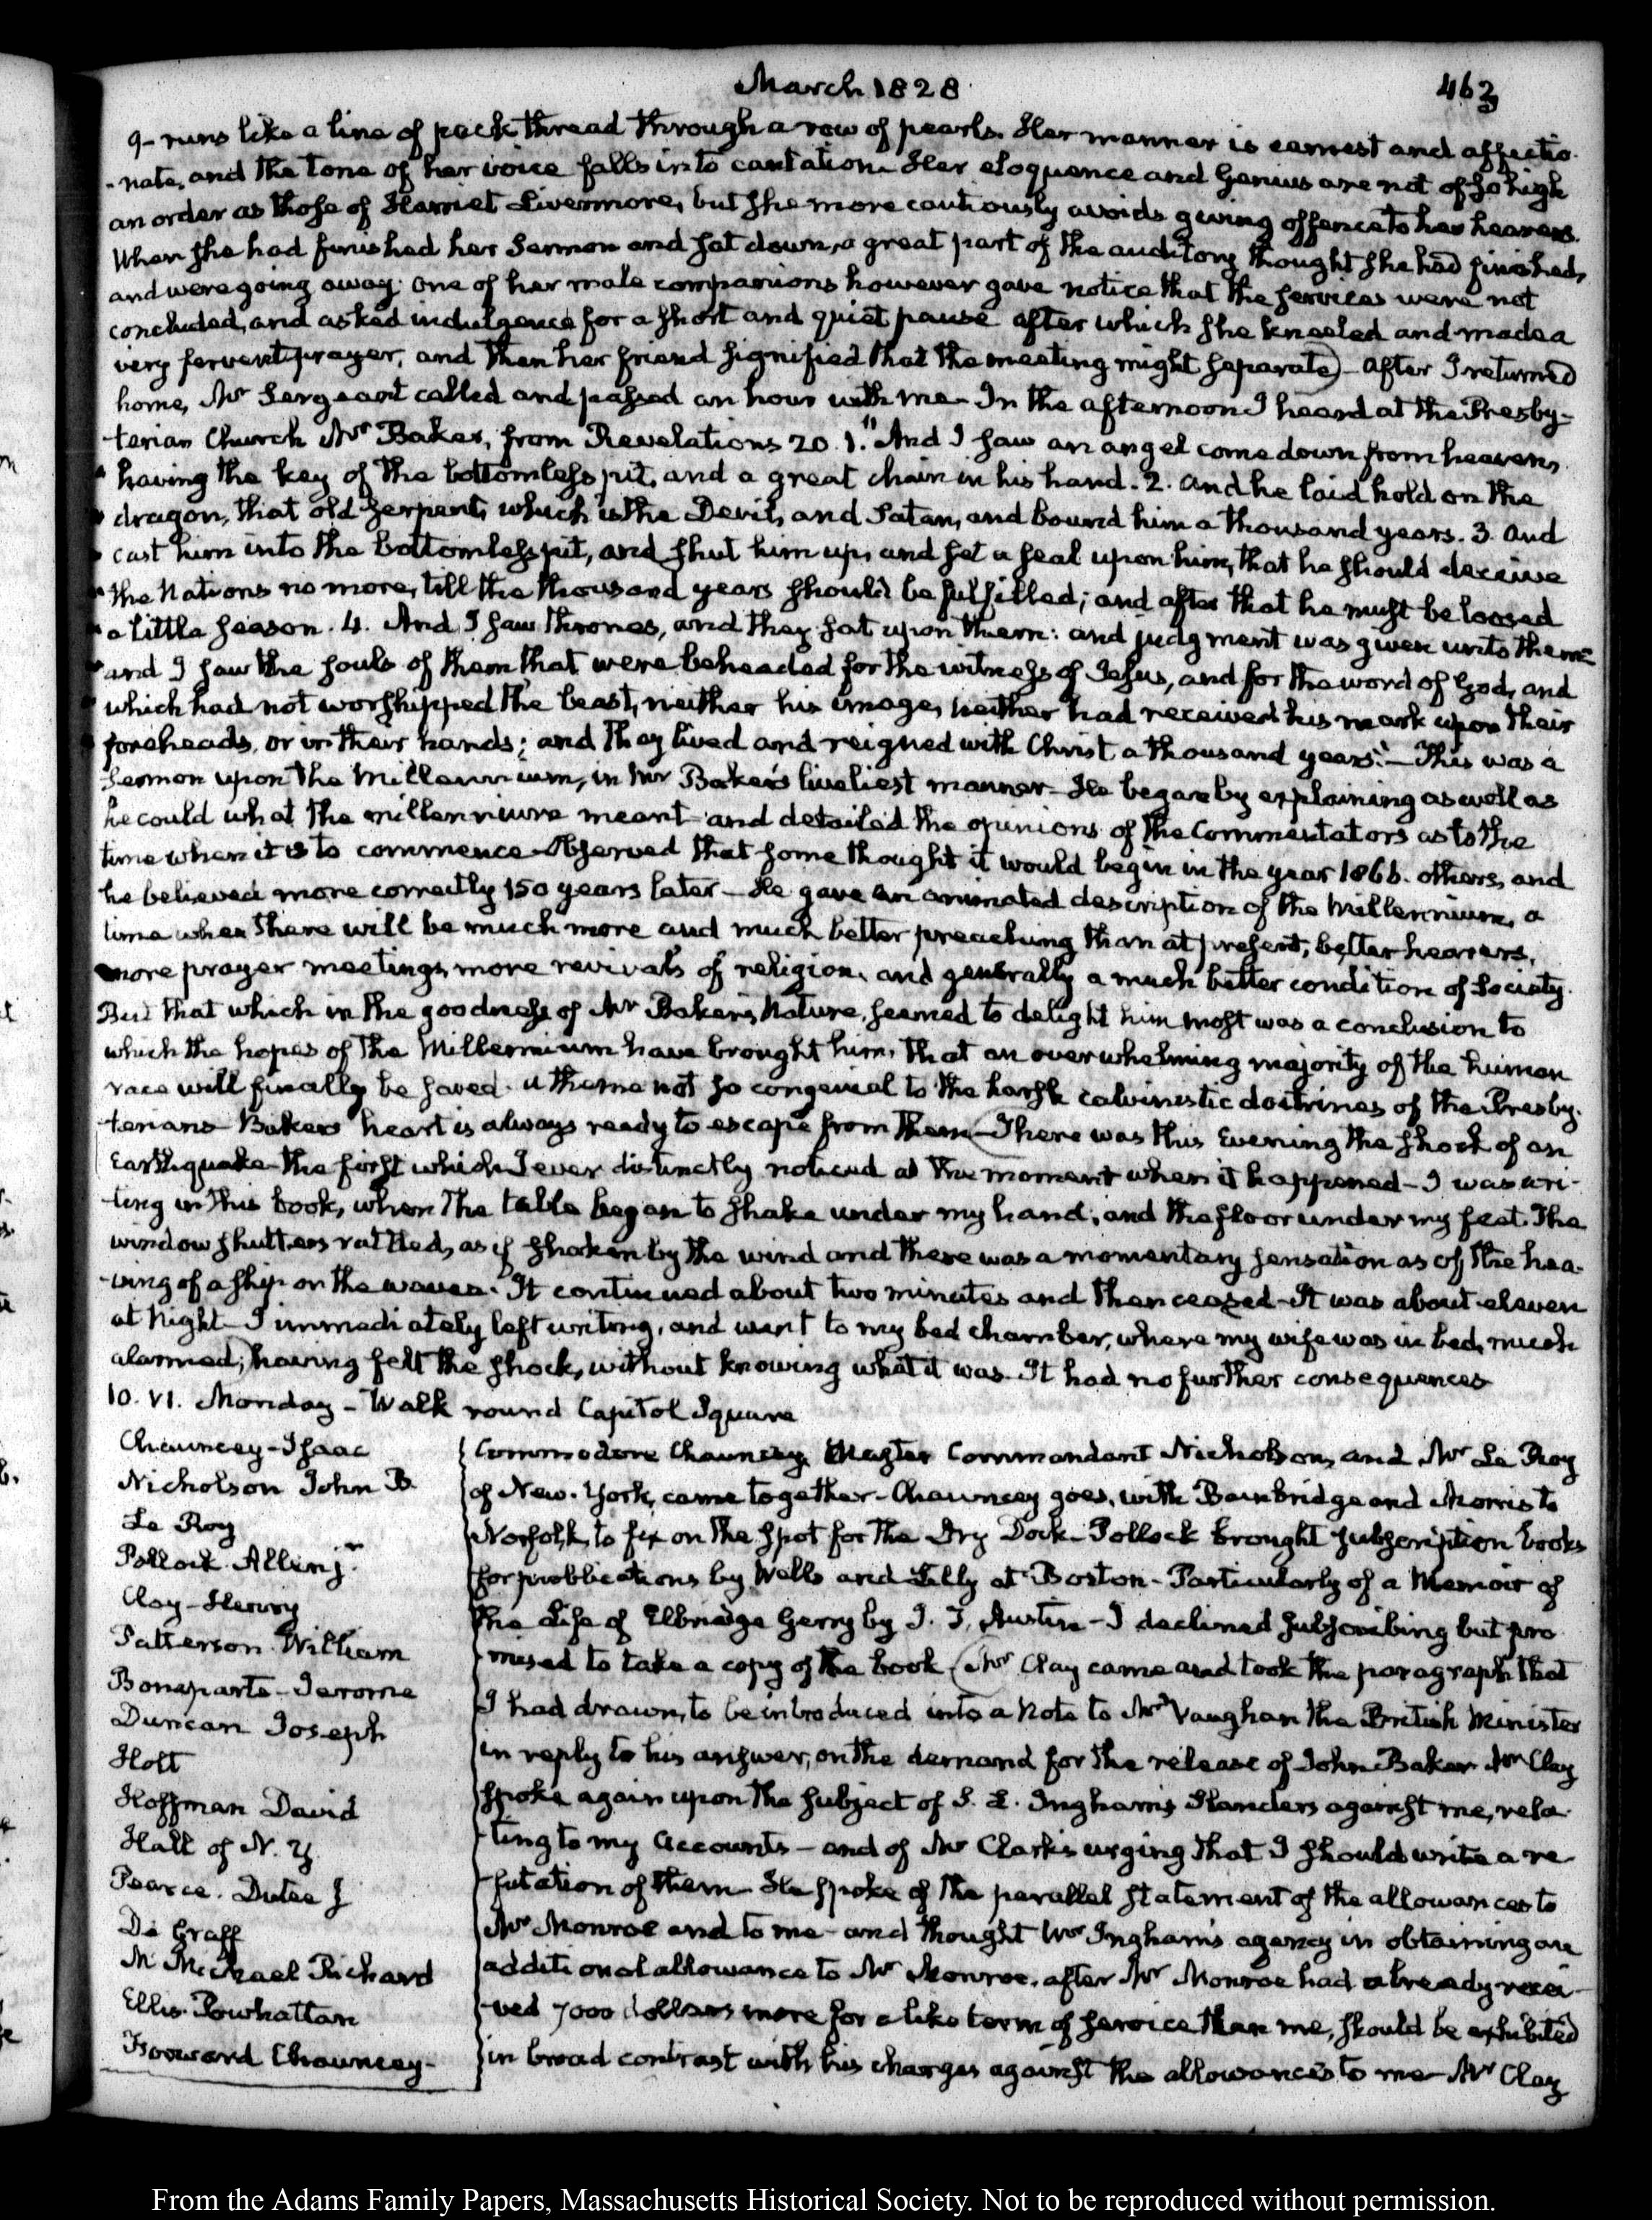 March 1828.
463
9- runs like a line of pack thread through a row of pearls. Her manner is earnest and affectio-
-nate, and the tone of her voice falls into cantation. Her eloquence and Genius are not of so high
an order as those of Harriet Livermore, but she more cautiously avoids giving offence to her hearers.
When she had finished her Sermon and sat down, a great part of the auditory thought she had finished,
and were going away. One of her male companions however gave notice that the services were not
concluded, and asked indulgence for a short and quiet pause after which she kneeled and made a
very fervent prayer, and then her friend signified that the meeting might separate) - After I returned
home, Mr Sergeant called and passed an hour with me - In the afternoon I heard at the Presby-
-terian Church Mr Baker, from Revelations 20. 1. "And I saw an angel come down from heaven,
" having the key of the bottomless pit, and a great chain in his hand. 2. And he laid hold on the
" dragon, that old serpent, which is the Devil, and Satan, and bound him a thousand years. 3. And
" cast him into the bottomless pit, and shut him up, and set a seal upon him, that he should deceive
" the Nations no more, till the thousand years should be fulfilled; and after that he must be loosed
" a little season. 4. And I saw thrones, and they sat upon them: and judgment was given unto them:
" and I saw the souls of them that were beheaded for the witness of Jesus, and for the word of God, and
" which had not worshipped the beast, neither his image, neither had received his mark upon their
" foreheads, or in their hands; and they lived and reigned with Christ a thousand years." - This was a
Sermon upon the Millennium, in Mr Baker's liveliest manner - He began by explaining as well as
he could what the millennium meant - and detailed the opinions of the Commentators as to the
time when it is to commence - Observed that some thought it would begin in the year 1866. others, and
he believed more correctly 150 years later - He gave an animated description of the Millennium, a
time when there will be much more and much better preaching than at present, better hearers,
more prayer meetings, more revivals of religion, and generally a much better condition of Society.
But that which in the goodness of Mr Baker's Nature, seemed to delight him most was a conclusion to
which the hopes of the Millennium have brought him, that an overwhelming majority of the human
race will finally be saved. a theme not so congenial to the harsh calvinistic doctrines of the Presby-
-terians - Baker's heart is always ready to escape from them - There was this Evening the shock of an
Earthquake - the first which I ever distinctly noticed at the moment when it happened - I was wri-
-ting in this book, when the table began to shake under my hand, and the floor under my feet. The
window shutters rattled, as if shaken by the wind and there was a momentary sensation as of the hea-
-ving of a ship on the waves. It continued about two minutes and then ceased - It was about eleven
at Night - I immediately left writing, and went to my bed chamber, where my wife was in bed, much
alarmed; having felt the shock, without knowing what it was. It had no further consequences
10. VI. Monday - Walk round Capitol Square
Chauncey - Isaac
Nicholson John B.
Le Roy
Pollock. Allen jr
Clay - Henry
Patterson. William
Bonaparte - Jerome
Duncan Joseph
Holt
Hoffman David
Hall of N. Y.
Pearce. Dutee J
De Graff
Michael Richard
Ellis. Powhattan
Forward Chauncey -
Commodore Chauncey, Master Commandant Nicholson, and Mr Le Roy
of New-York, came together - Chauncey goes, with Bainbridge and Morris to
Norfolk, to fix on the spot for the Dry Dock - Pollock brought subscription books
for publications by Wells and Lilly at Boston - Particularly of a Memoir of
the Life of Elbridge Gerry by J. T. Austin - I declined subscribing but pro-
-mised to take a copy of the book (Mr Clay came and took the paragraph that
I had drawn, to be introduced into a Note to Mr Vaughan the British Minister
in reply to his answer, on the demand for the release of John Baker. Mr Clay
spoke again upon the subject of S. D. Ingham's slanders against me, rela-
-ting to my Accounts - and of Mr Clark's urging that I should write a re-
-futation of them - He spoke of the parallel statement of the allowances to
Mr Monroe and to me - and thought Mr Ingham's agency in obtaining an
additional allowance to Mr Monroe, after Mr Monroe had already recei-
-ved 7000 dollars more for a like term of service than me, should be exhibited
in broad contrast with his charges against the allowances to me - Mr Clay
From the Adams Family Papers, Massachusetts Historical Society. Not to be reproduced without permission.